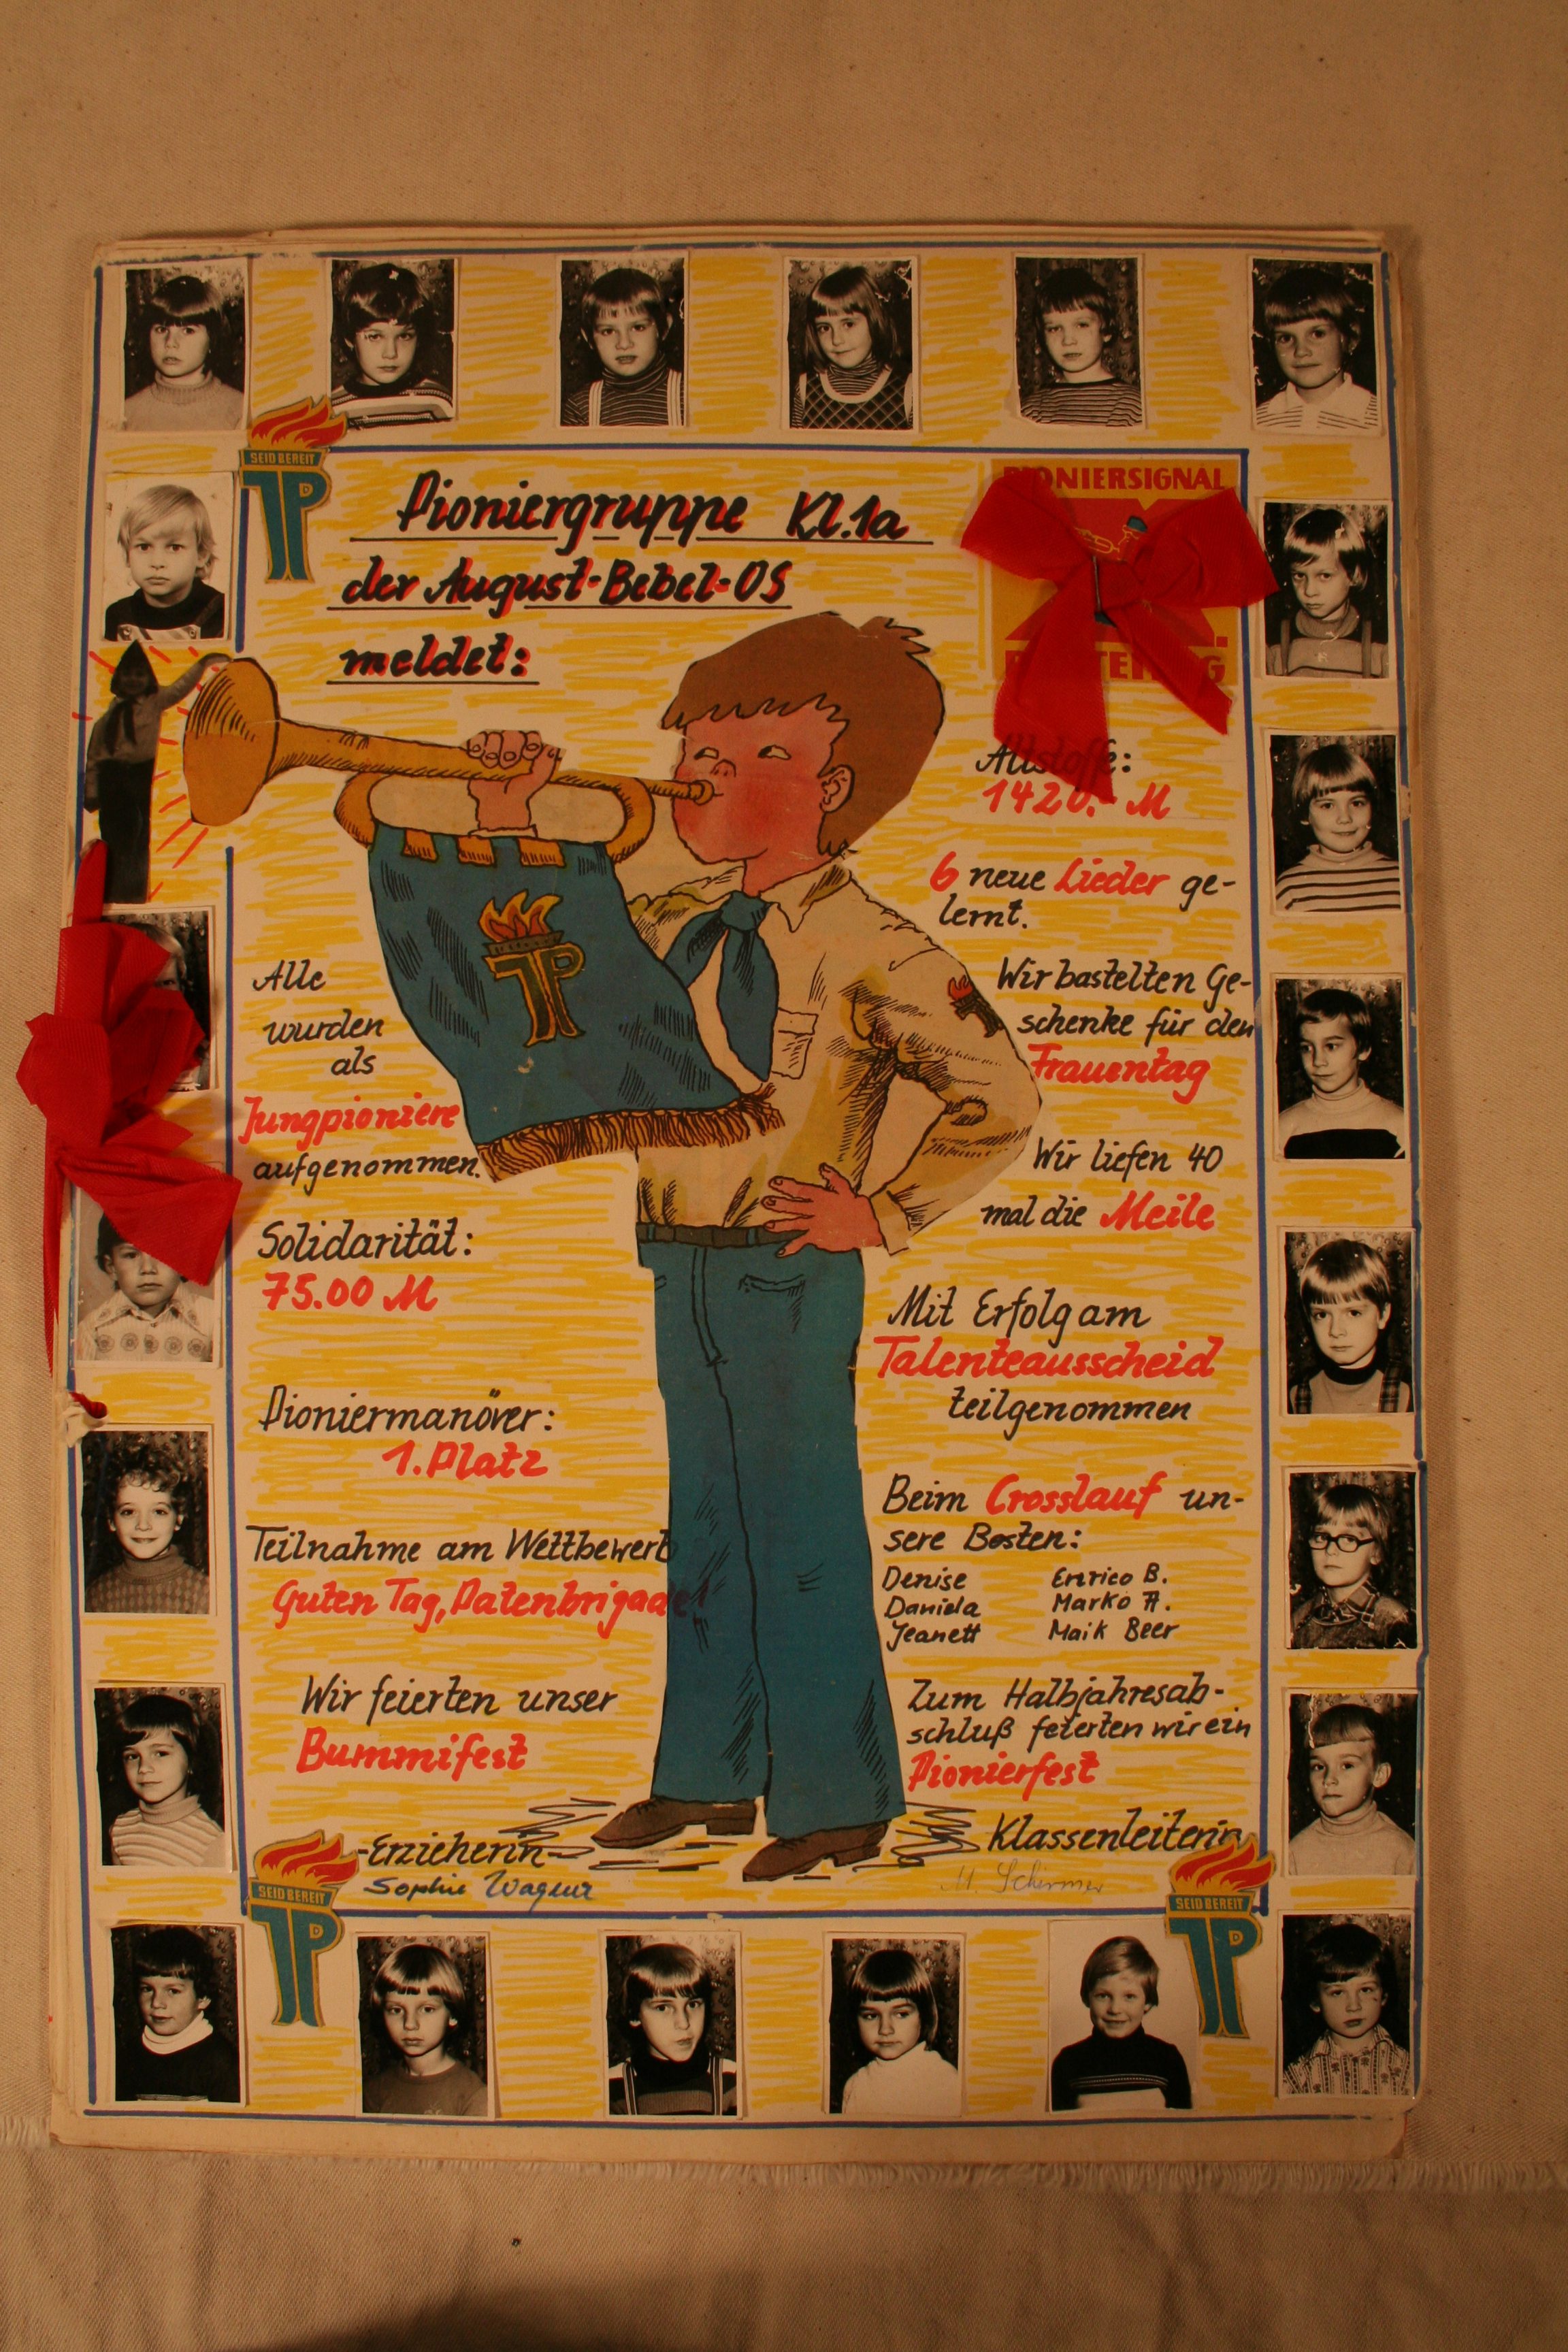 SEID BEREIT
JP
Pioniergruppe Kl.1a
der August-Bebel-OS
meldet:
PIONIERSIGNAL
Alle
wurden
als
Jungpioniere
aufgenommen.
Solidarität:
75.00 M
Pioniermanöver:
1. Platz
Teilnahme am Wettbewerb
Guten Tag, Patenbrigade!
Wir feierten unser
Bummifest
-Erzieherin-
Sophie Wagner
JP
Altstoffe:
1420.- M
6 neue Lieder ge-
lernt.
Wir bastelten Ge-
schenke für den
Frauentag
Wir liefen 40
mal die Meile
Mit Erfolg am
Talenteausscheid
teilgenommen
Beim Crosslauf un-
sere Besten:
Denise Enrico B.
Daniela Marko A.
Jeanett Maik Beer
Zum Halbjahresab-
schluß feierten wir ein
Pionierfest
Klassenleiterin
M. Schirmer
SEID BEREIT
JP
SEID BEREIT
JP